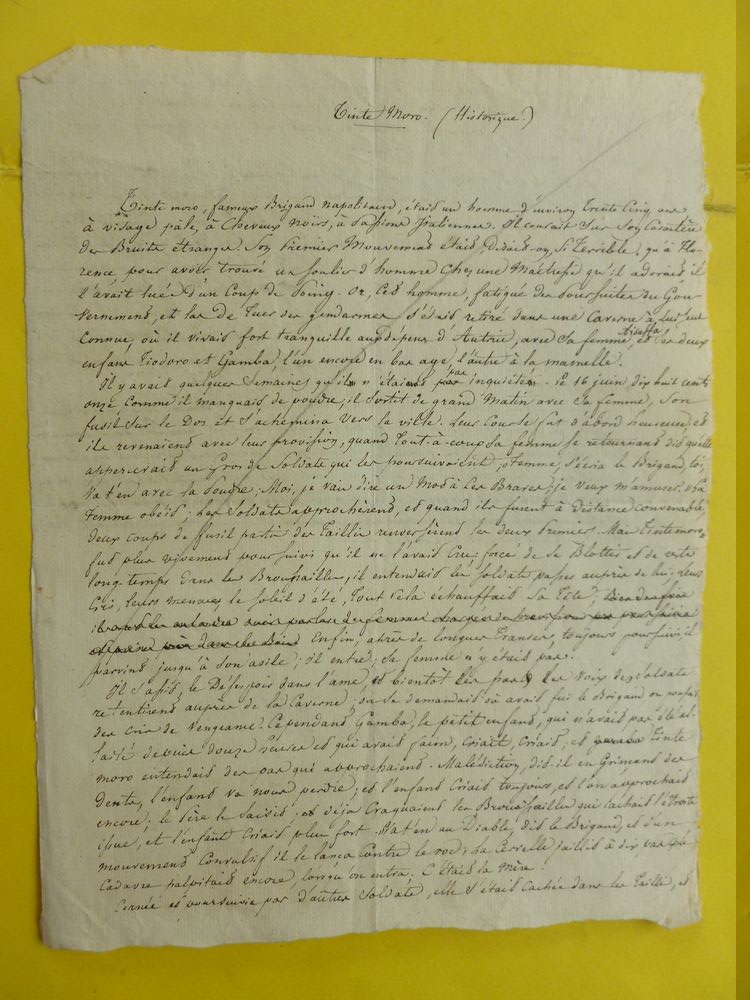 Tinte Moro. (Historique.)
Tinte moro, fameux Brigand napolitain, était un homme d'environ trente cinq ans
à visage pâle, à Cheveux Noirs, à passions Italiennes. Il courait Sur Son Caractère
des Bruits étranges. Son Premier Mouvement était, Disait-on, Si Terrible, qu'à Flo-
rence, pour avoir trouvé un soulier d'homme chez une Maîtresse qu'il adorait il
l'avait tuée d'un Coup de Poing. Or, Cet homme, fatigué des Poursuites du Gou-
vernement, et las De Tuer des gendarmes S'était retiré dans une Caverne à lui seul
Connue, où il vivait fort tranquille aux dépens d'Autrui, avec Sa femme, et Ses deux
enfans Tiodoro et Gamba, l'un encore en bas age, l'autre à la mamelle.
Il y avait quelques Semaines qu'ils n'étaient pas inquiétés. le 16 juin dix huit cent
onze Comme il manquait de poudre, il Sortit de grand Matin avec Sa femme, Son
fusil Sur le Dos et S'achemina Vers la ville. Leur Course fut d'abord heureuse, et
ils revenaient avec leur provision, quand Tout-à-coup Sa femme Se retournant dit qu'elle
appercevait un Gros de Soldats qui les poursuivaient, Femme, S'écria le Brigand, toi,
Va t'en avec la Poudre, Moi, je vais dire un Mot à Ces Braves, je veux m'amuser. La
Femme obéit; les Soldats approchèrent, et quand ils furent à distance convenable,
deux coups de fusil partis des Taillis renversèrent les deux premiers. Mais Tintemoro
fut plus vivement poursuivi qu'il ne l'avait Cru: force de Se Blottir et de rester
long-temps Dans les Broussailles, il entendait les Soldats passer auprès de lui. Leurs
Cris, leurs menaces, le Soleil d'été, Tout Cela échauffait Sa Tête;
Enfin, après de longues Transes, toujours poursuivi, il
parvint jusqu'à Son asile; Il entre; Sa femme n'y était pas.
Il S'assit, le Désespoir dans l'ame, et bientôt les pas et les Voix des Soldats
retentirent auprès de la Caverne; on Se demandait où avait fui le Brigand on poussait
des Cris de Vengeance. Cependant Gamba, le petit enfant, qui n'avait pas été al-
laité depuis douze heures et qui avait faim, criait, Criait, et Tinte
moro entendait des pas qui approchaient. Malédiction, dit-il en Grinçant des
Dents, l'enfant va nous perdre; et l'enfant Criait toujours, et l'on approchait
encore; le Père le Saisit; et déjà Craquaient les Broussailles qui cachaient l'étroite
issue, et l'enfant Criait plus fort. Va t'en au Diable, dit le Brigand, et d'un
mouvement Convulsif il le lança Contre le roc; Sa Cervelle jaillit à dix pas, le
Cadavre palpitait encore, lorsqu'on entra. C'était la Mère.
Cernée et poursuivie par d'autres Soldats, elle S'était Cachée dans les Taillis, et